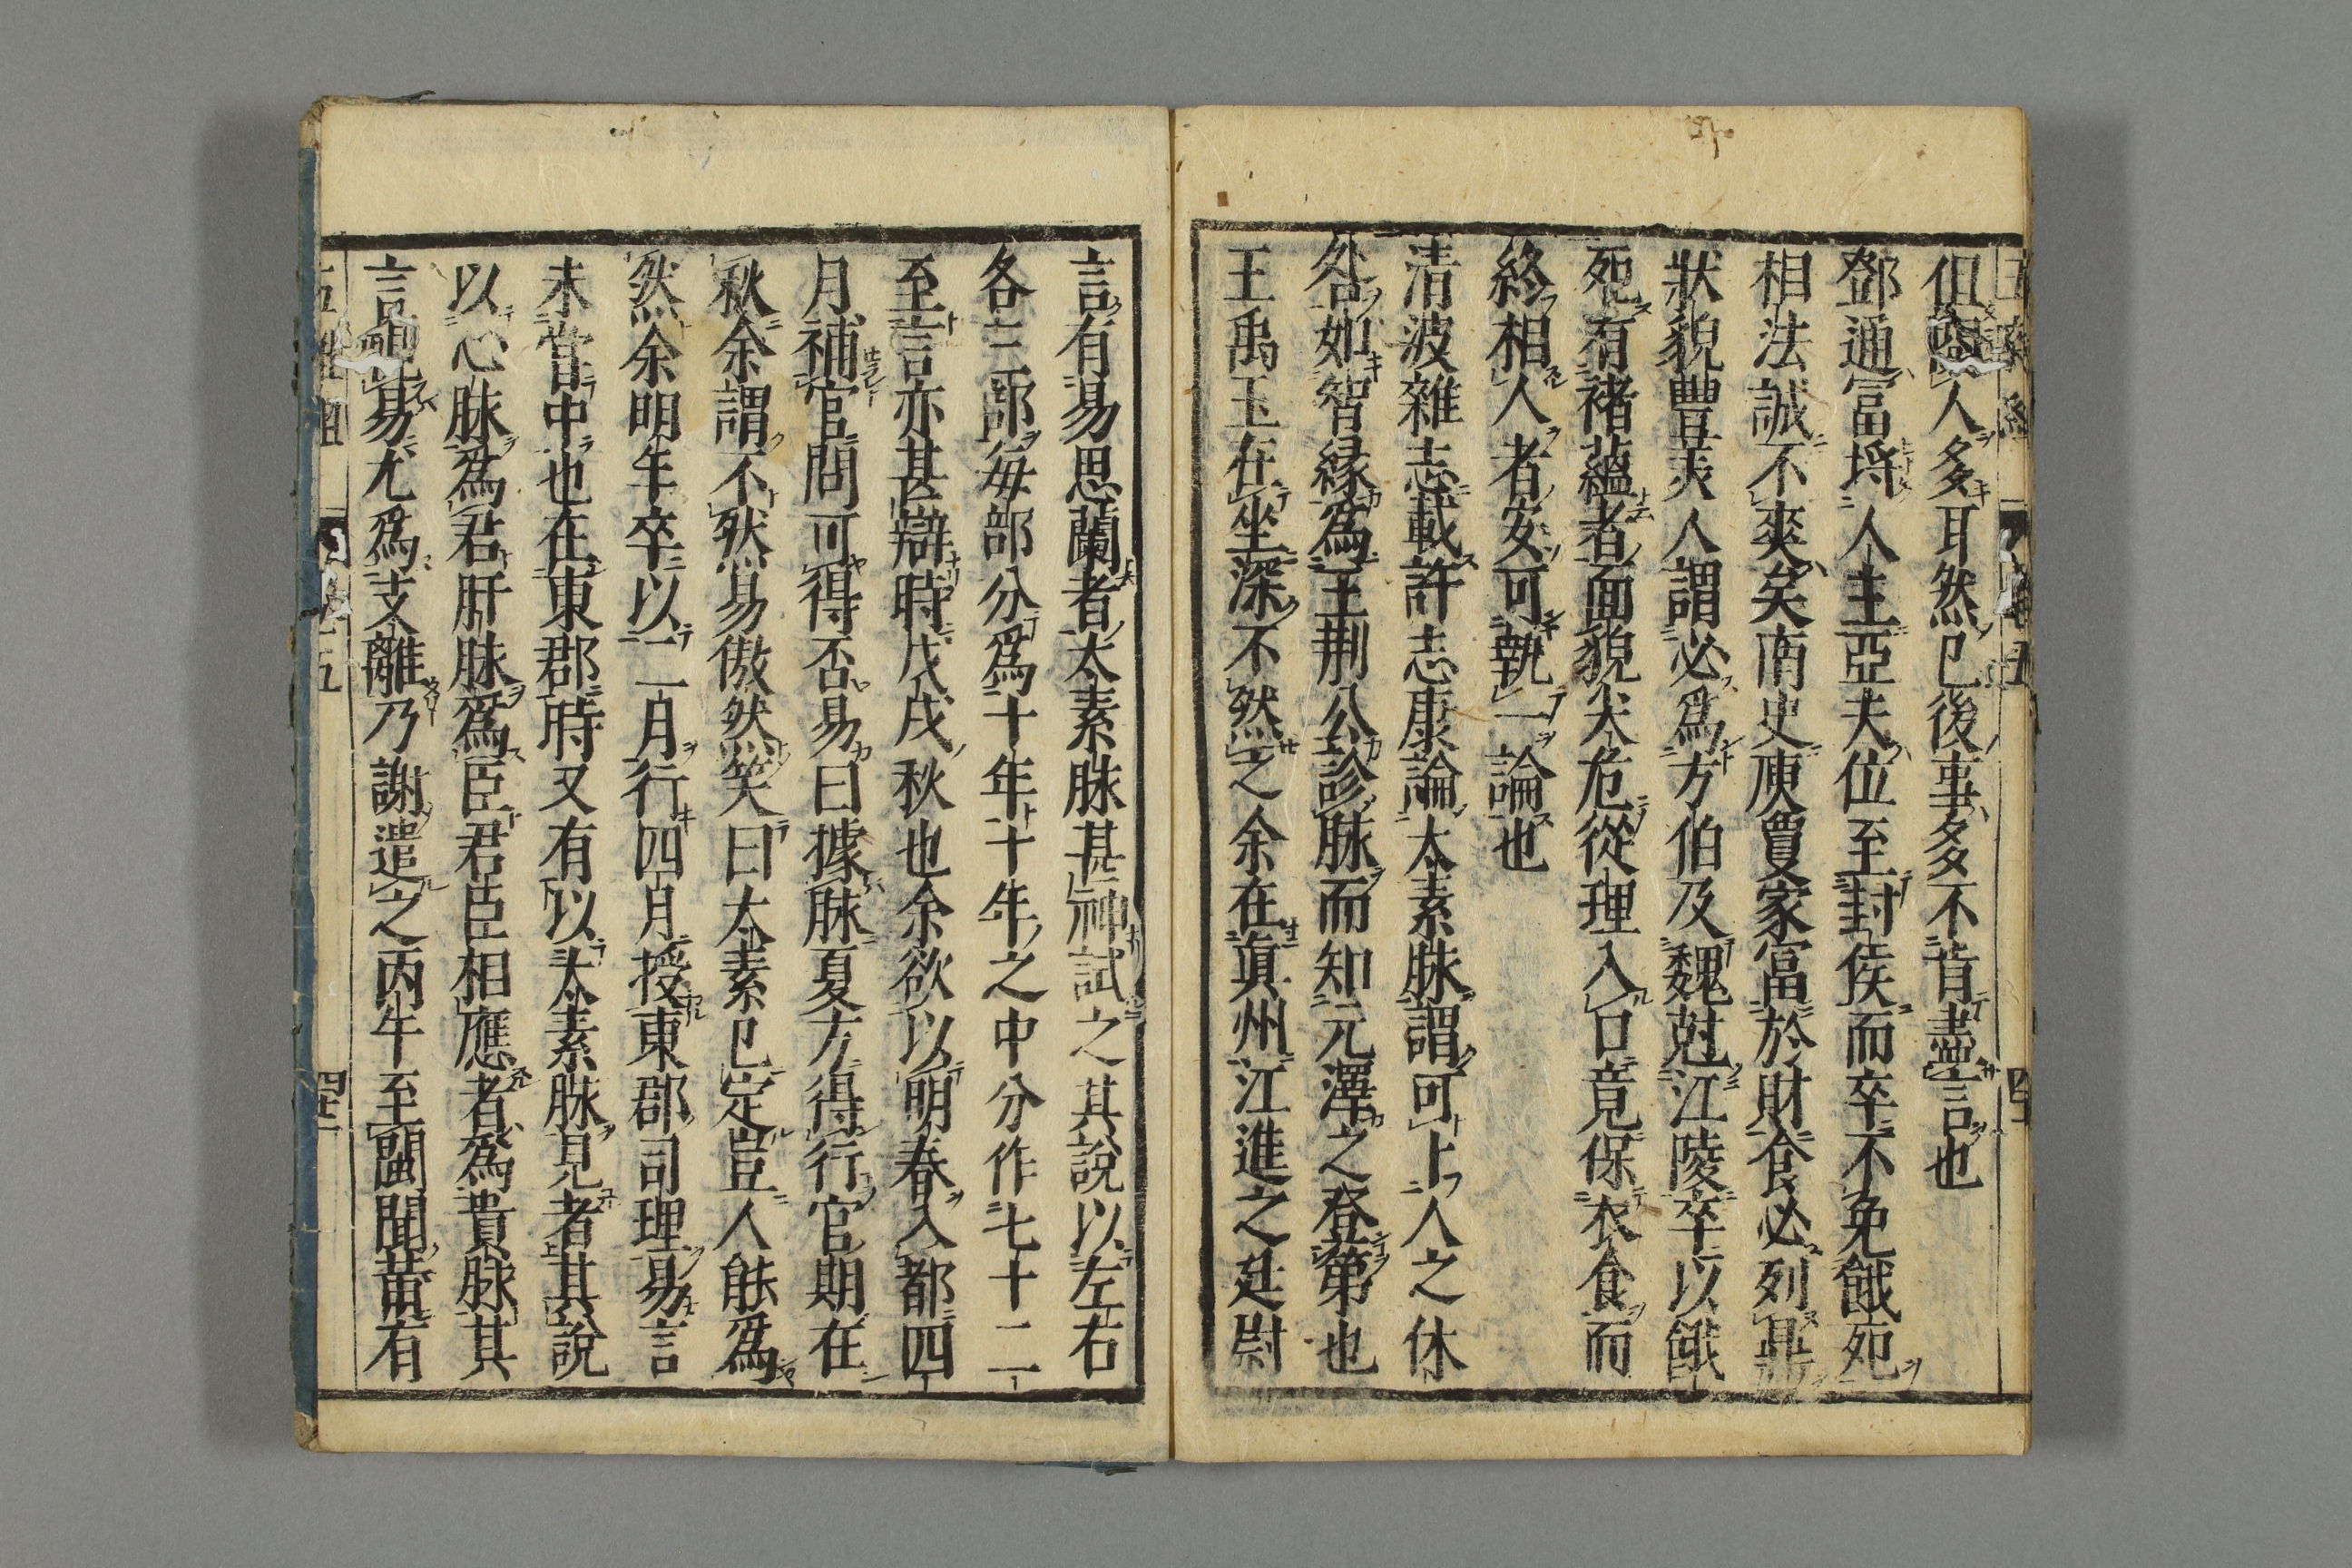 但閱人多耳然已後事多不肯盡言也
鄧通富埒人主亞夫位至封侯而卒不免餓死
相法誠不爽矣南史庾敻家富於財食必列鼎
狀貌豐美人謂必為方伯及魏尅江陵卒以餓
死有褚蘊者面貌尖危從理入口竟保衣食而
終相人者安可執一論也
清波雜志載許志康論太素脉謂可卜人之休
咎如智緣為王荆公診脉而知元澤之登第也
王禹玉在坐深不然之余在真州江進之廷尉
言有易思蘭者太素脉甚神試之其說以左右
各三部每部分為十年十年之中分作七十二
至言亦甚辯時戊戌秋也余欲以明春入都四
月補官問可得否易曰據脉夏方得行官期在
秋余謂不然易傲然笑曰太素已定豈人能為
然余明年卒以二月行四月授東郡司理易言
未嘗中也在東郡時又有以太素脉見者其說
以心脉為君肝脉為臣君臣相應者為貴脉其
言視易尤為支離乃謝遣之丙午至閩聞黃有
五雜組
五
四十一